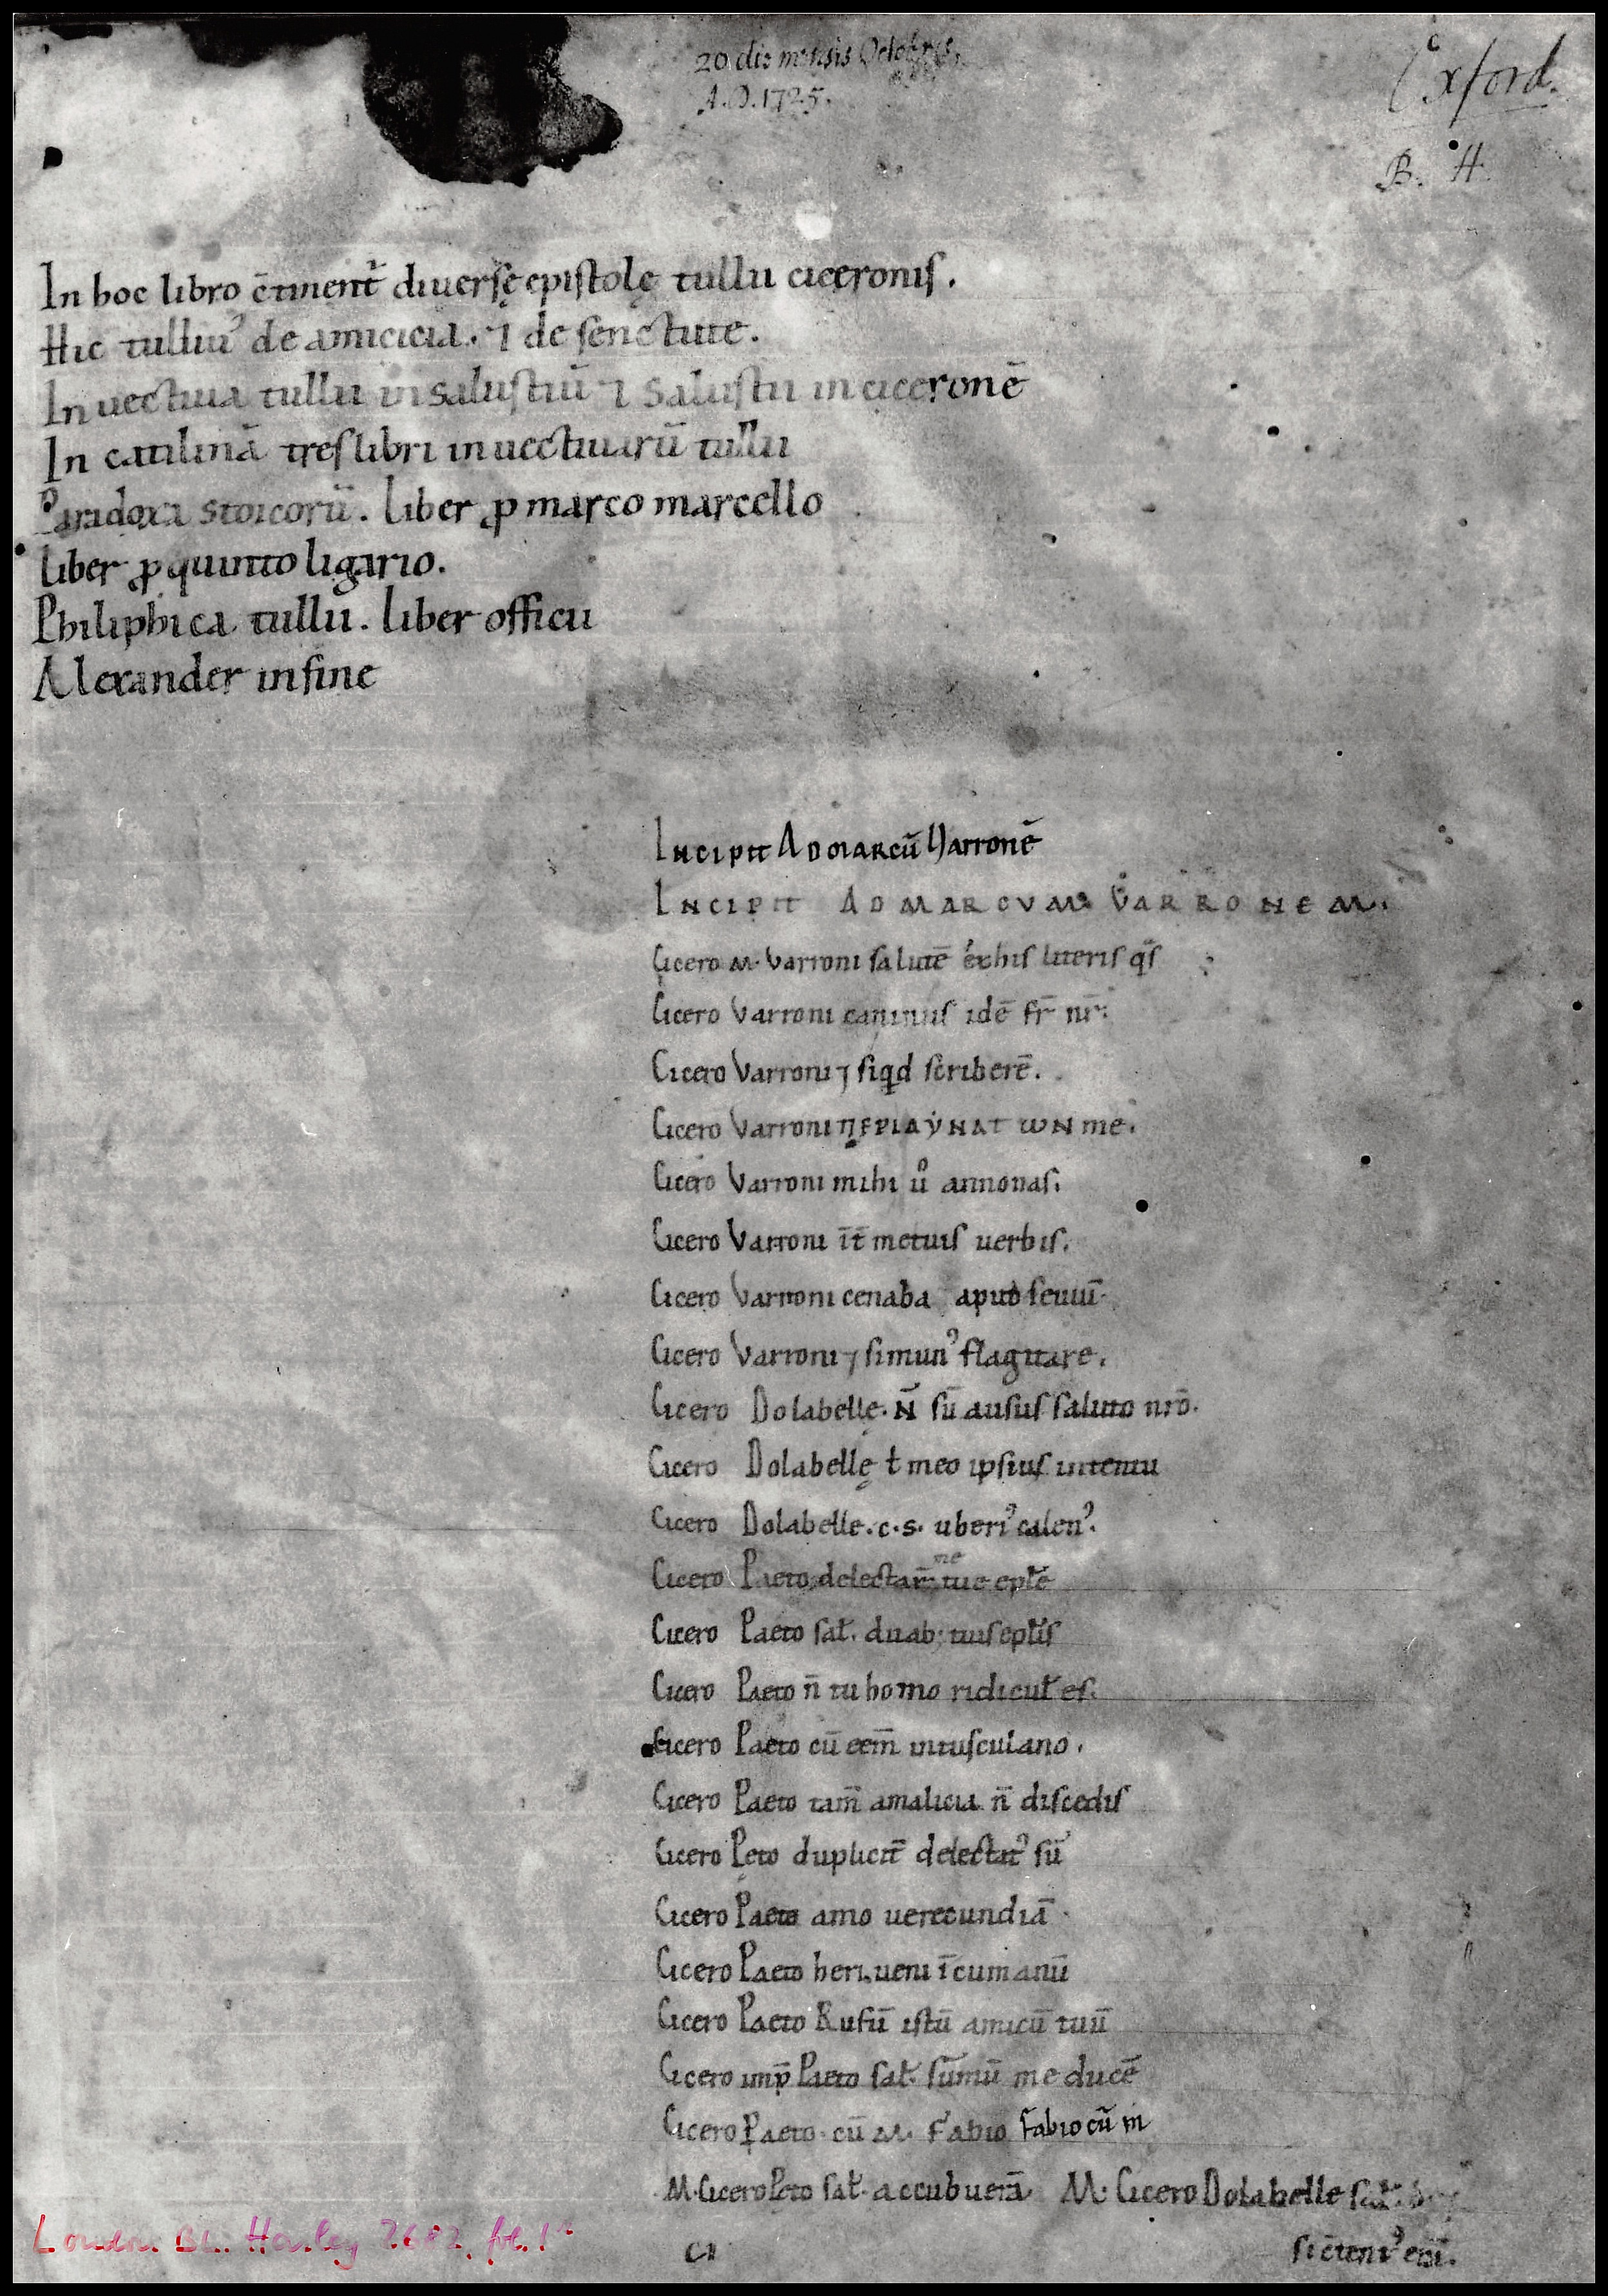 20 die mensis Octobris,
A.D. 1725.
Oxford.
B. H.
In hoc libro c̄tinent̄ diuersę epistolę tullii ciceronis.
Hic tulliuꝰ de amicicia. ⁊ de senectute.
Inuectiua tullii in salustiū ⁊ Salustii in ciceronē
In catilinā tres libri inuectiuarū tullii
Paradoxa stoicorū. liber ꝓ marco marcello
liber ꝓ quinto ligario.
Philiphica tullii. liber officii
Alexander in fine
Incipit Ad marcū Varronē
Incipit AD MARCVM VARRONEM.
Cicero M. Varroni salutē ex his literis qs̄
Cicero Varroni caninius idē fr̄ nr̄.
Cicero Varroni ⁊ siqd scriberē.
Cicero Varroni ΠΕΡΙΔΥΝΑΤ ωΝ me.
Cicero Varroni mihi uͦ annonas.
Cicero Varroni it̄ metuis uerbis.
Cicero Varroni cenaba apud seuiū
Cicero Varroni ⁊ si munꝰ flagitare.
Cicero Dolabelle. N̄ sū ausus saluto nrō.
Cicero Dolabellę ł meo ipsius interitu
Cicero Dolabelle. c. s. uberiꝰ calenꝰ.
Cicero Paeto delectar̄ me tue eplē
Cicero Paeto sal̄. duab; tuis epl̄is
Cicero Paeto n̄ tu homo ridicul̄ es.
Cicero Paeto cū eēm̄ in tusculano.
Cicero Paeto tam̄ a malicia n̄ discedis
Cicero Peto duplicit̄ delectatꝰ sū
Cicero Paeto amo uerecundiā
Cicero Paeto heri ueni ī cumanū
Cicero Paeto Rufū istū amicū tuū
Cicero imp̄ Paeto sal̄. sūmū me ducē
Cicero Paeto. cū M. Fabio Fabio cū m
M. Cicero Peto sal̄. accubuerā M. Cicero Dolabelle
London BL. Harley 2682, fol. 1